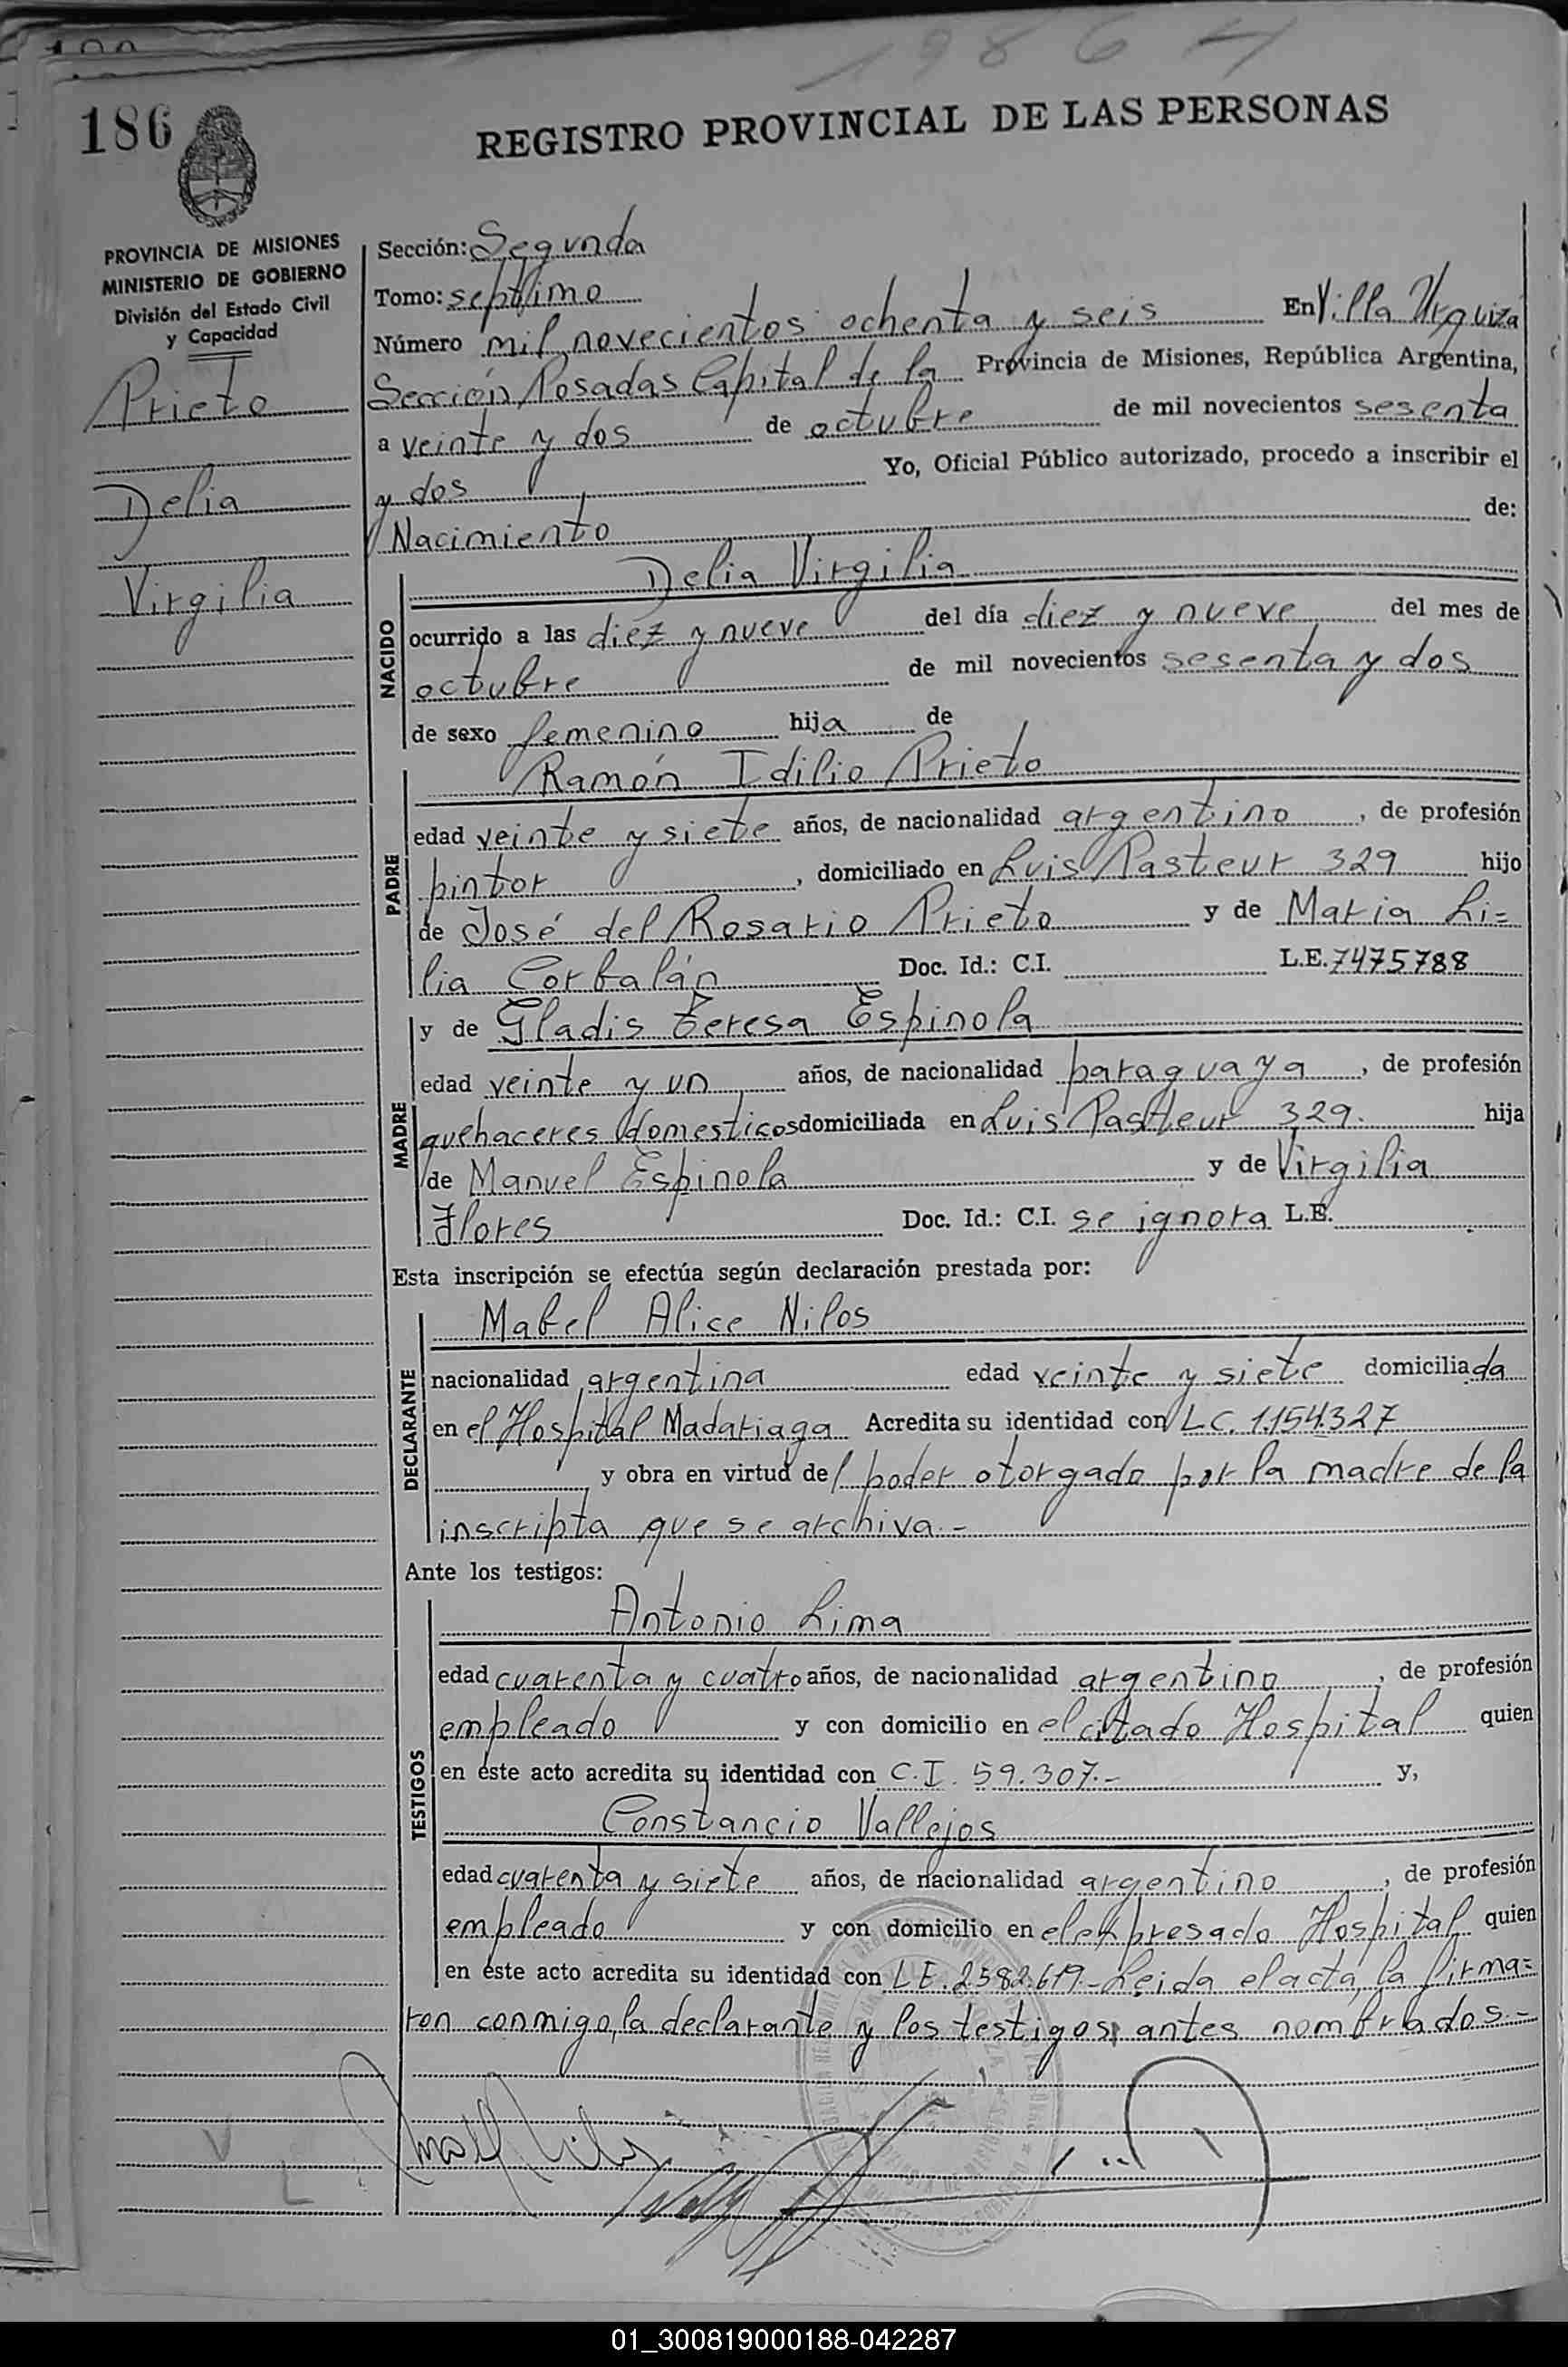 1986
186
REGISTRO PROVINCIAL DE LAS PERSONAS
PROVINCIA DE MISIONES
MINISTERIO DE GOBIERNO
División del Estado Civil
y Capacidad
Prieto
Delia
Virgilia
Sección: Segunda
Tomo: septimo
Número mil novecientos ochenta y seis En Villa Urquiza
Sección Posadas Capital de la Provincia de Misiones, República Argentina,
a veinte y dos de octubre de mil novecientos sesenta
y dos Yo, Oficial Público autorizado, procedo a inscribir el
Nacimiento de:
NACIDO
Delia Virgilia
ocurrido a las diez y nueve del día diez y nueve del mes de
octubre de mil novecientos sesenta y dos
de sexo femenino hija de
PADRE
Ramón Idilio Prieto
edad veinte y siete años, de nacionalidad argentino, de profesión
pintor, domiciliado en Luis Pasteur 329 hijo
de José del Rosario Prieto y de Maria Li=
lia Corbalán Doc. Id.: C.I. L.E. 7475788
MADRE
y de Gladis Teresa Espinola
edad veinte y un años, de nacionalidad paraguaya, de profesión
quehaceres domesticos domiciliada en Luis Pasteur 329. hija
de Manuel Espinola y de Virgilia
Flores Doc. Id.: C.I. se ignora L.E.
Esta inscripción se efectúa según declaración prestada por:
DECLARANTE
Mabel Alice Nilos
nacionalidad argentina edad veinte y siete domiciliada
en el Hospital Madariaga Acredita su identidad con L.C. 1.154.327
y obra en virtud del poder otorgado por la madre de la
inscripta que se archiva.-
Ante los testigos:
TESTIGOS
Antonio Lima
edad cuarenta y cuatro años, de nacionalidad argentino, de profesión
empleado y con domicilio en el citado Hospital quien
en este acto acredita su identidad con C.I. 59.307.- y,
Constancio Vallejos
edad cuarenta y siete años, de nacionalidad argentino, de profesión
empleado y con domicilio en el expresado Hospital quien
en este acto acredita su identidad con L.E. 2.582.619.- Leida el acta, la firma=
ron conmigo, la declarante y los testigos, antes nombrados.-
01_300819000188-042287